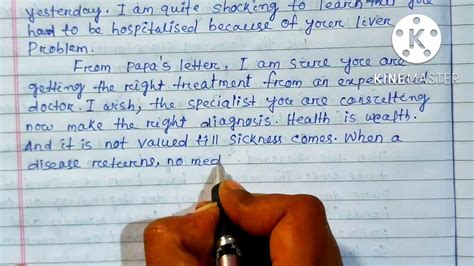 yesterday. I am quite shocking to learn that you
had to be hospitalised because of your liver
Problem.
From papa's letter, I am sure you are
getting the right treatment from an expe
doctor. I wish, the specialist you are consulting
now make the right diagnosis. Health is wealth.
And it is not valued till sickness comes. When a
disease returns, no med
KINEMASTER